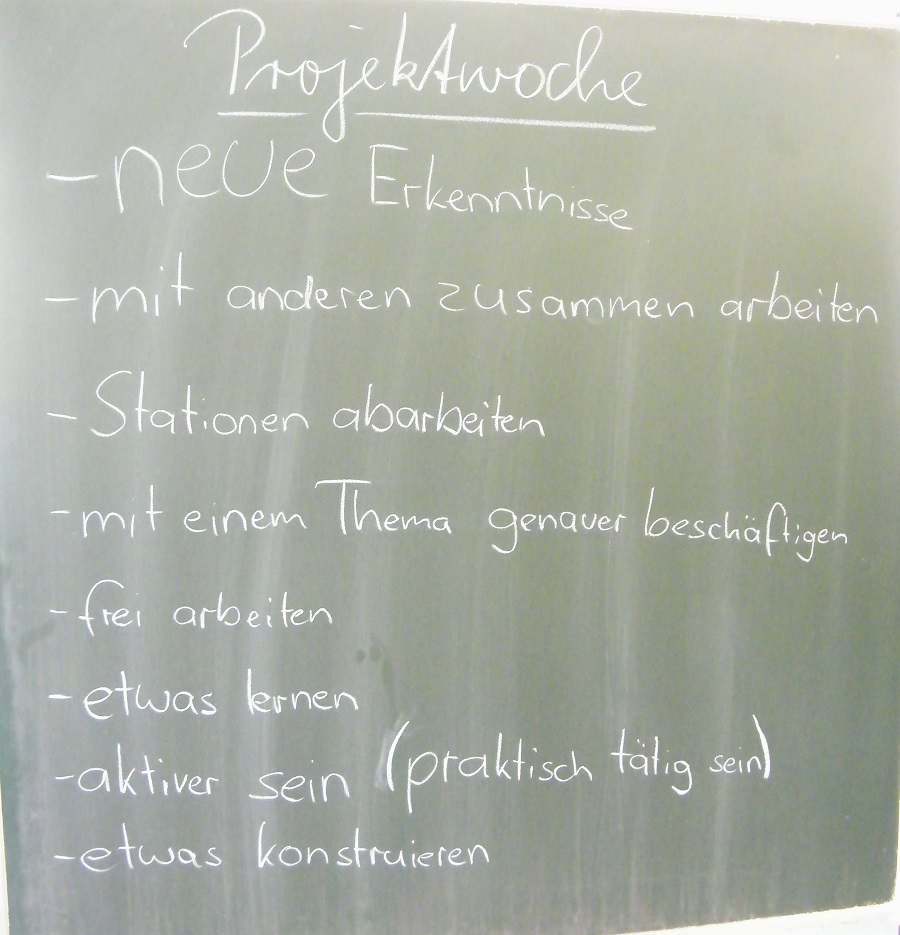 Projektwoche
- neue Erkenntnisse
- mit anderen zusammen arbeiten
- Stationen abarbeiten
- mit einem Thema genauer beschäftigen
- frei arbeiten
- etwas lernen
- aktiver sein (praktisch tätig sein)
- etwas konstruieren